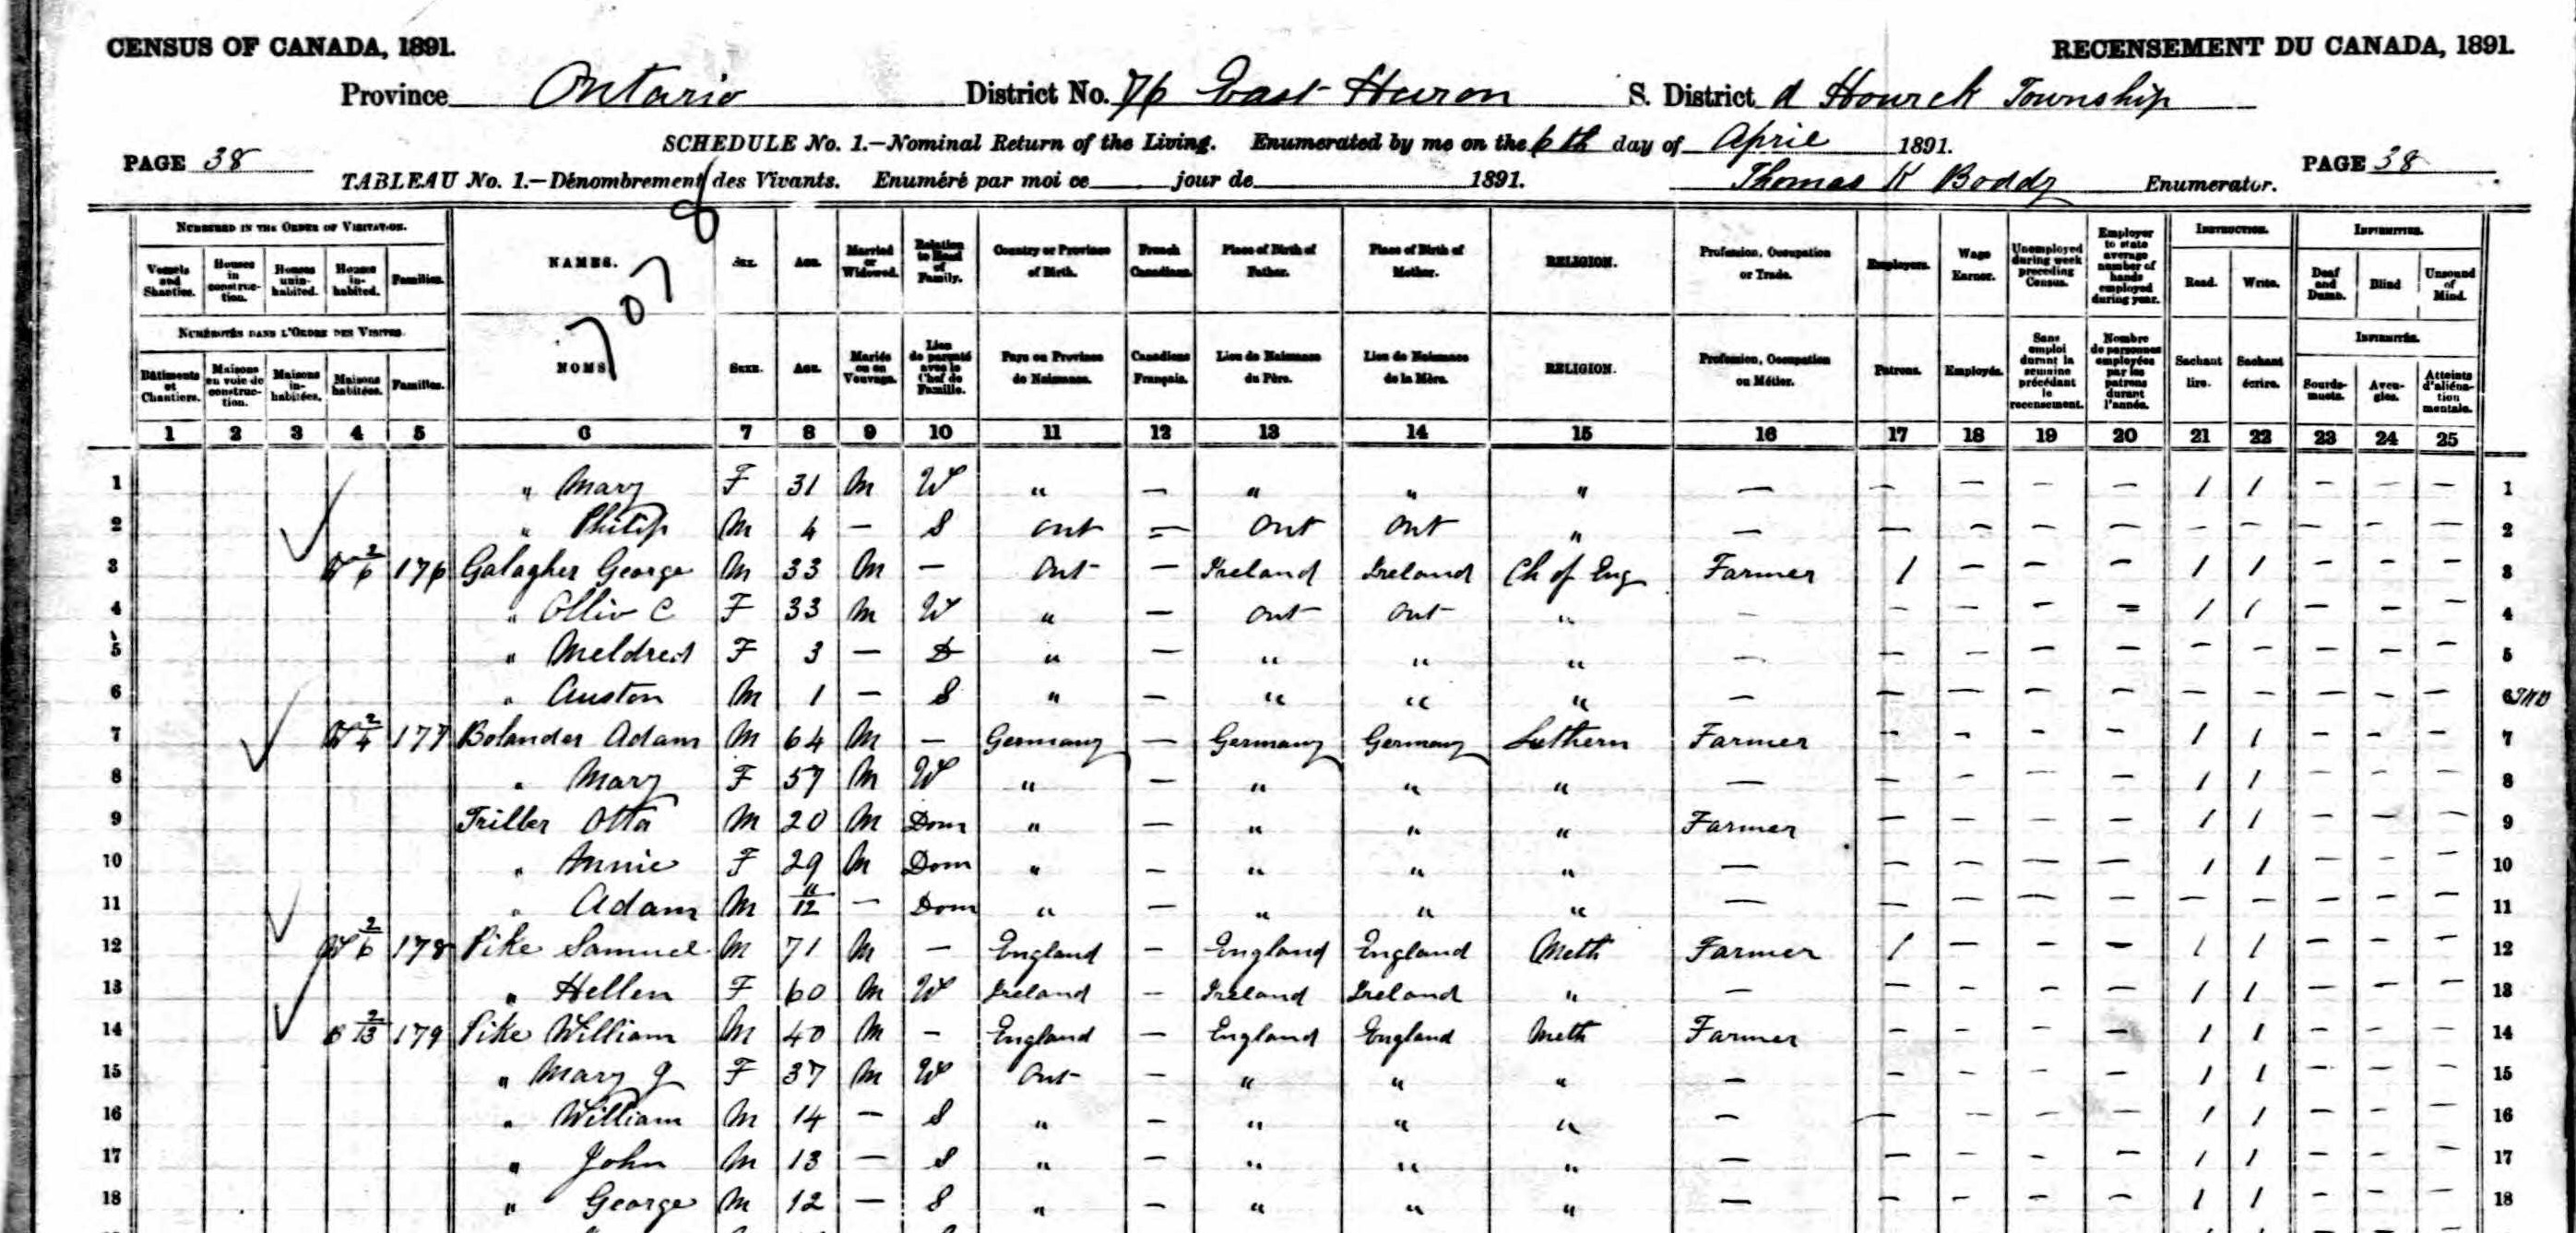 CENSUS OF CANADA, 1891. RECENSEMENT DU CANADA, 1891.
Province Ontario District No. 76 East Huron S. District d Howick Township
SCHEDULE No. 1.—Nominal Return of the Living. Enumerated by me on the 6th day of April 1891.
PAGE 38 PAGE 38
TABLEAU No. 1.—Dénombrement des Vivants. Enuméré par moi ce jour de 1891. Thomas K Boddy Enumerator.
NUMBERED IN THE ORDER OF VISITATION. NAMES. SEX. AGE. Married or Widowed. Relation to Head of Family. Country or Province of Birth. French Canadians. Place of Birth of Father. Place of Birth of Mother. RELIGION. Profession, Occupation or Trade. Employers. Wage Earner. Unemployed during week preceding Census. Employer to state average number of hands employed during year. INSTRUCTION. INFIRMITIES.
Vessels and Shanties. Houses in construction. Houses uninhabited. Houses inhabited. Families. Read. Write. Deaf and Dumb. Blind Unsound of Mind.
707
NUMÉROTÉS DANS L'ORDRE DES VISITES. NOMS SEXE. AGE. Mariés ou en Veuvage. Lien de parenté avec le Chef de Famille. Pays ou Province de Naissance. Canadiens Français. Lieu de Naissance du Père. Lieu de Naissance de la Mère. RELIGION. Profession, Occupation ou Métier. Patrons. Employés. Sans emploi durant la semaine précédant le recensement. Nombre de personnes employées par les patrons durant l'année. INFIRMITÉS.
Bâtiments et Chantiers. Maisons en voie de construction. Maisons inhabitées. Maisons habitées. Familles. Sachant lire. Sachant écrire. Sourds-muets. Aveugles. Atteints d'aliénation mentale.
1 2 3 4 5 6 7 8 9 10 11 12 13 14 15 16 17 18 19 20 21 22 23 24 25
1 " Mary F 31 M W " — " " " — — — — — 1 1 — — — 1
2 " Philip M 4 — S Ont — Ont Ont " — — — — — — — — — — 2
3 W 2/6 176 Galagher George M 33 M — Ont — Ireland Ireland Ch of Eng Farmer 1 — — — 1 1 — — — 3
4 " Olliv C F 33 M W " — Ont Ont " — — — — — 1 1 — — — 4
5 " Meldred F 3 — D " — " " " — — — — — — — — — — 5
6 " Auston M 1 — S " — " " " — — — — — — — — — — 6
7 W 2/4 177 Bolander Adam M 64 M — Germany — Germany Germany Luthern Farmer — — — — 1 1 — — — 7
8 " Mary F 57 M W " — " " " — — — — — 1 1 — — — 8
9 Triller Otto M 20 M Dom " — " " " Farmer — — — — 1 1 — — — 9
10 " Annie F 29 M Dom " — " " " — — — — — 1 1 — — — 10
11 " Adam M 11/12 — Dom " — " " " — — — — — — — — — — 11
12 W 2/6 178 Pike Samuel M 71 M — England — England England Meth Farmer 1 — — — 1 1 — — — 12
13 " Hellen F 60 M W Ireland — Ireland Ireland " — — — — — 1 1 — — — 13
14 B 2/13 179 Pike William M 40 M — England — England England Meth Farmer — — — — 1 1 — — — 14
15 " Mary J F 37 M W Ont — " " " — — — — — 1 1 — — — 15
16 " William M 14 — S " — " " " — — — — — 1 1 — — — 16
17 " John M 13 — S " — " " " — — — — — 1 1 — — — 17
18 " George M 12 — S " — " " " — — — — — 1 1 — — — 18